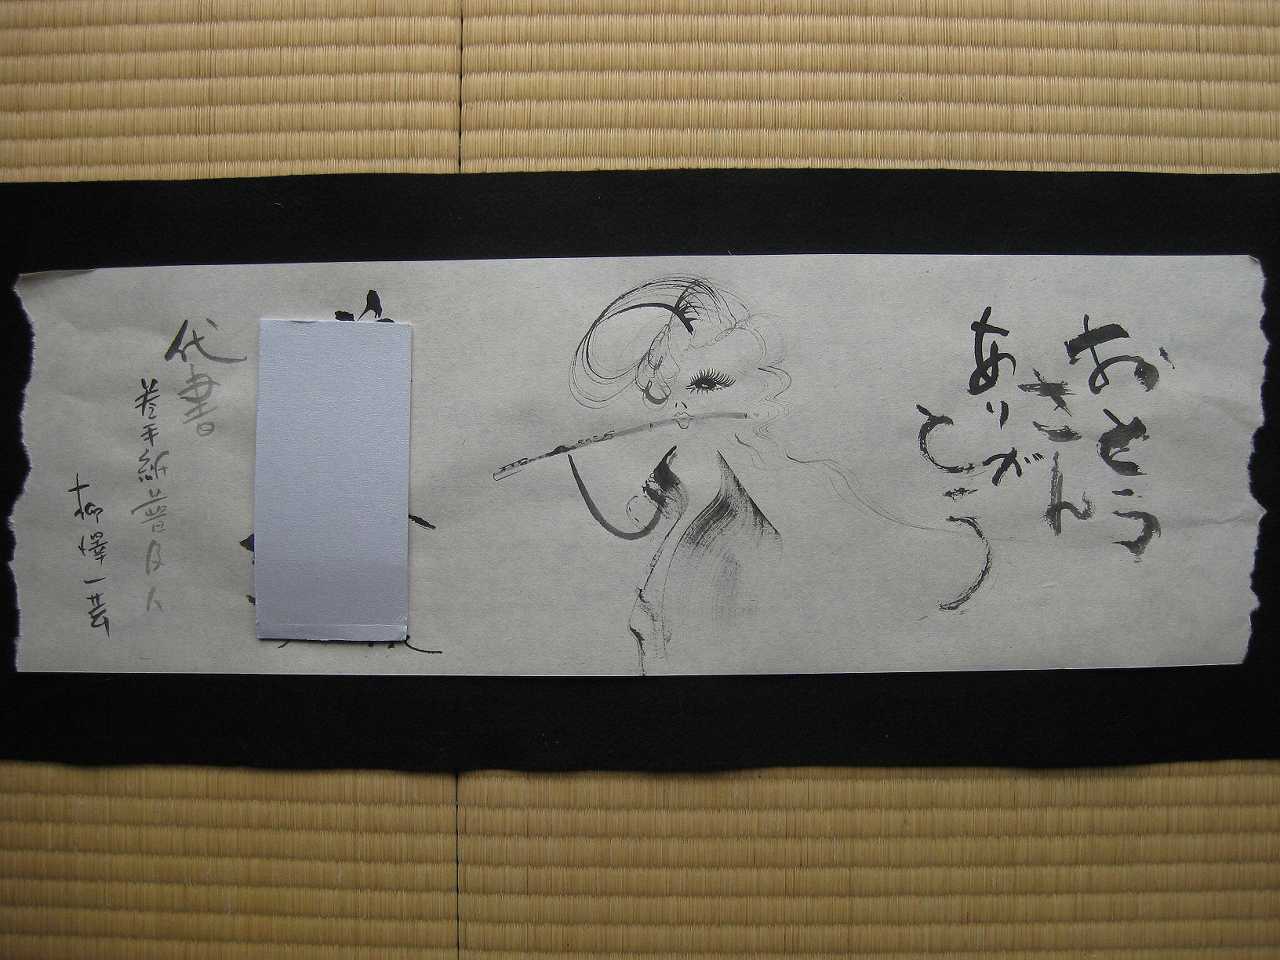 おとう
さん
ありが
とう
代書
巻手紙普及人
柳澤一芸